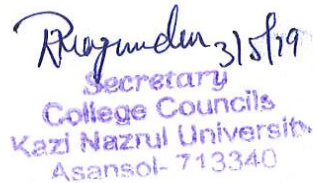 3/5/19
Secretary
College Councils
Kazi Nazrul University
Asansol- 713340